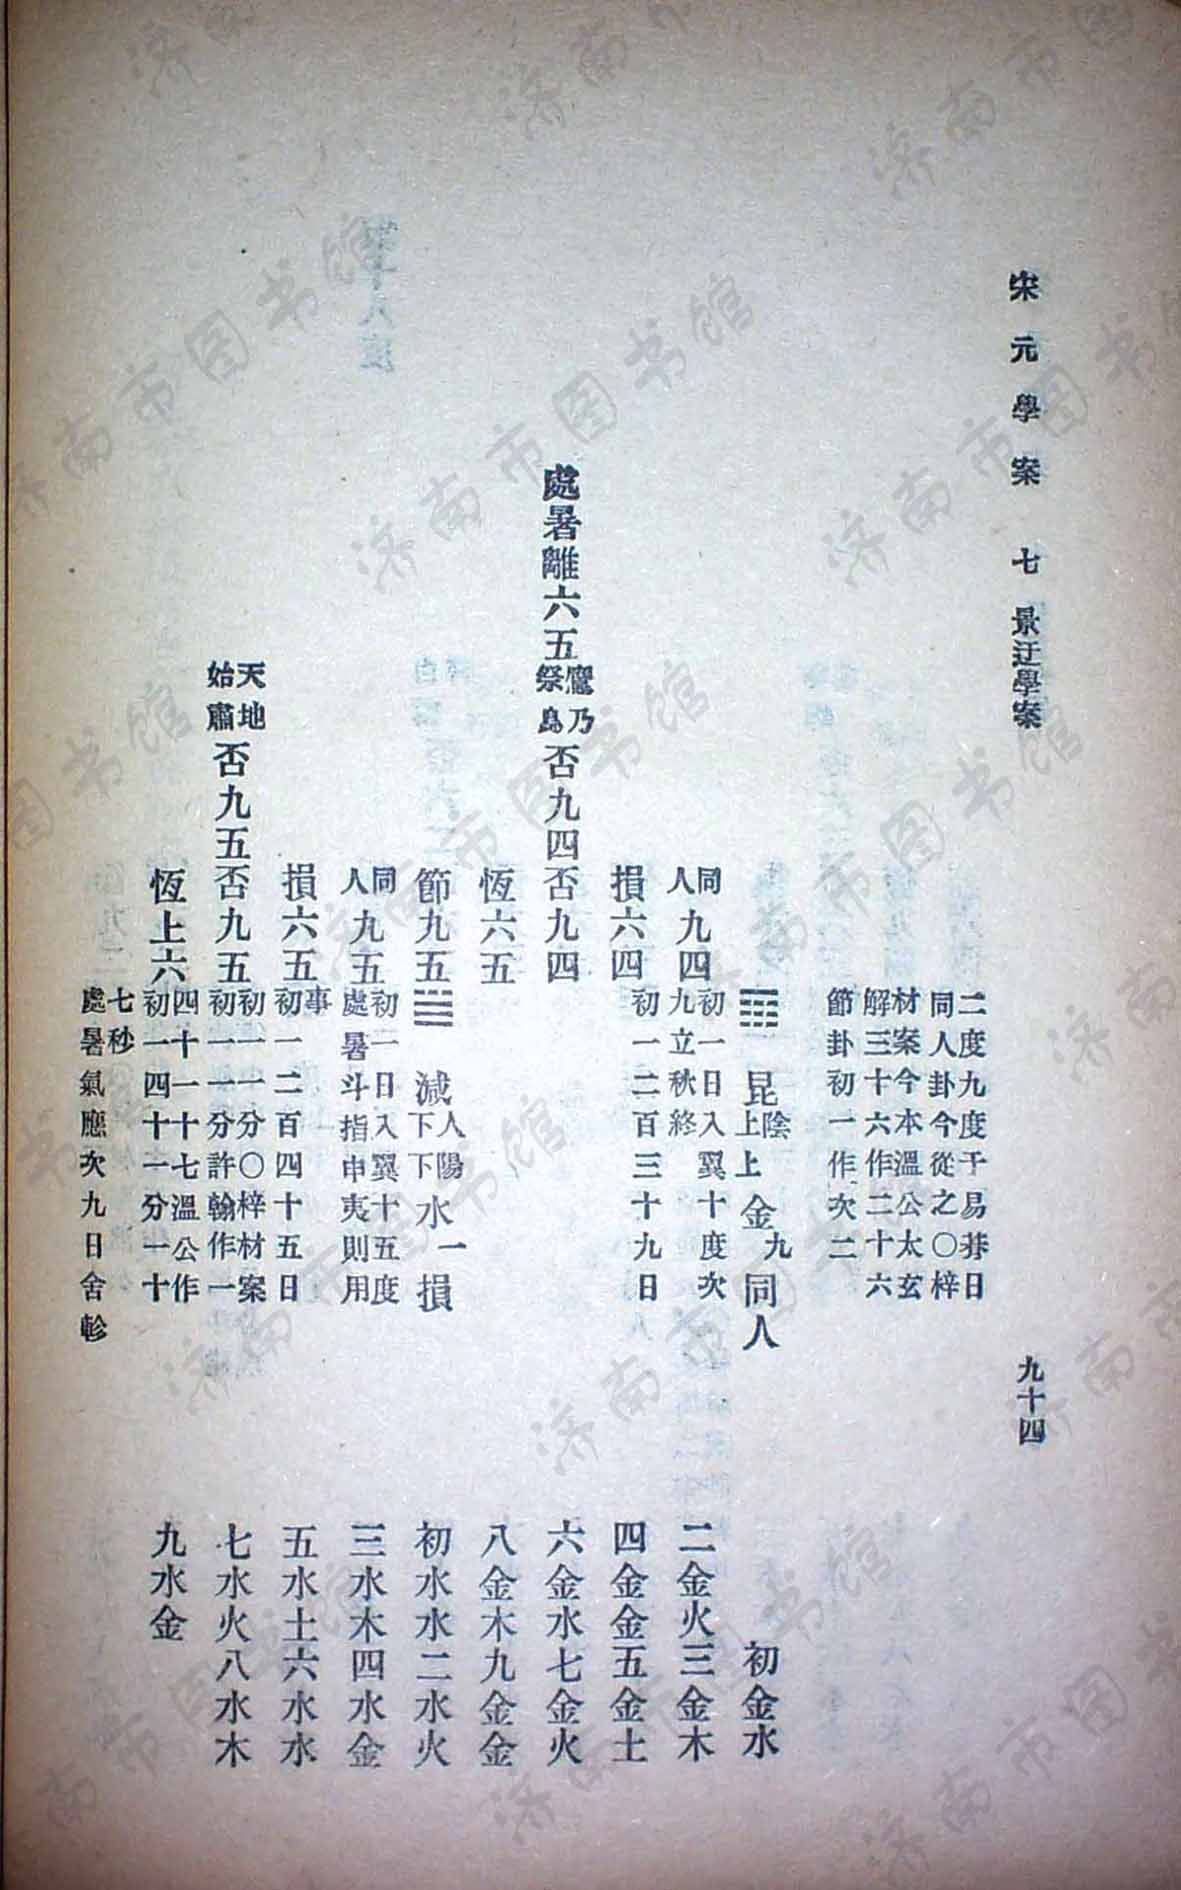 宋元學案 七 景迂學案 九十四
二度九度于易朞日
同人卦今從之〇梓
材案今本溫公太玄
解三十六作二十六
節卦初一作次二
昆 陰上上 金九 同人 初金水
同人九四 初一日入翼十度次九立秋終 二金火三金木
損六四 初一二百三十九日 四金金五金土
處暑離六五 鷹乃祭鳥 否九四否九四 六金水七金火
恆六五 八金木九金金
節九五 減 人陽下下 水一 損 初水水二水火
同人九五 初二日入翼十五度處暑斗指申夷則用 三水木四水金
損六五 事初一二百四十五日 五水土六水水
天地始肅 否九五否九五 初一一分〇梓材案初一一分許翰作一 七水火八水木
恆上六 四十一十七溫公作初一四十一分一十 九水金
七秒
處暑氣應次九日舍軫
济南市图书馆